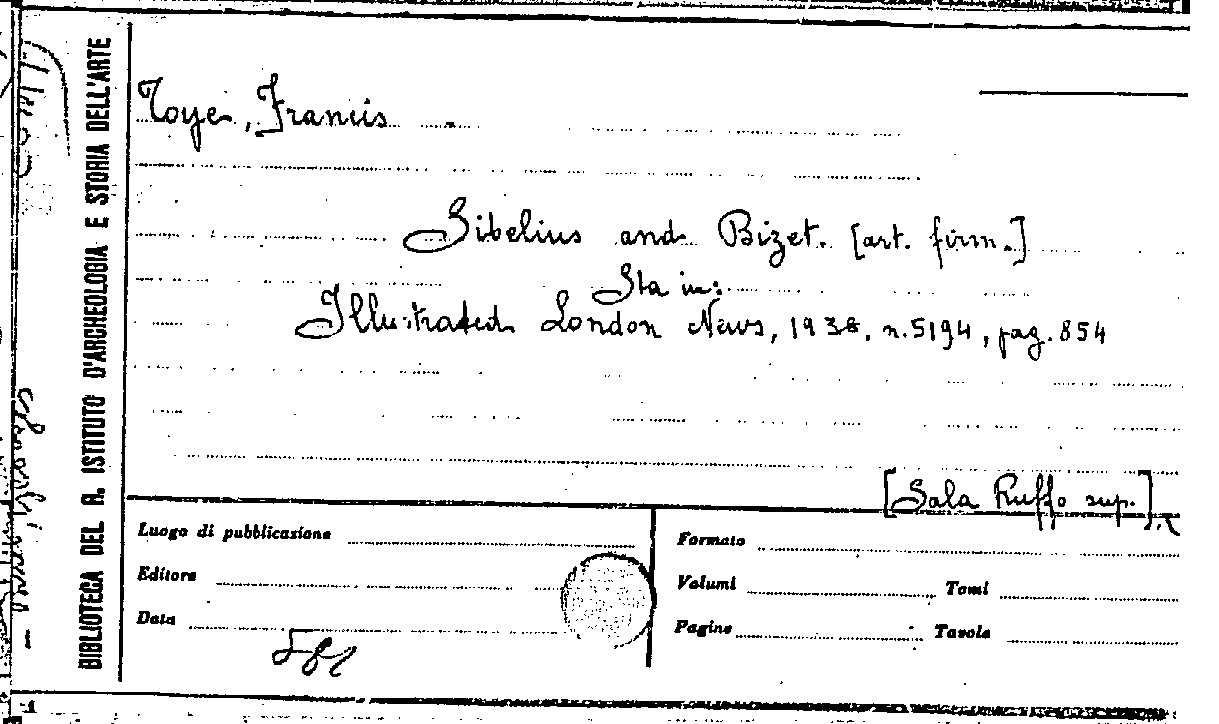 BIBLIOTECA DEL R. ISTITUTO D'ARCHEOLOGIA E STORIA DELL'ARTE
Toye, Francis
Sibelius and Bizet. [art. firm.]
Sta in:
Illustrated London News, 1938, n.5194, pag. 854
[Sala Ruffo sup.]
Luogo di pubblicazione
Editore
Data
Formato
Volumi Tomi
Pagine Tavole